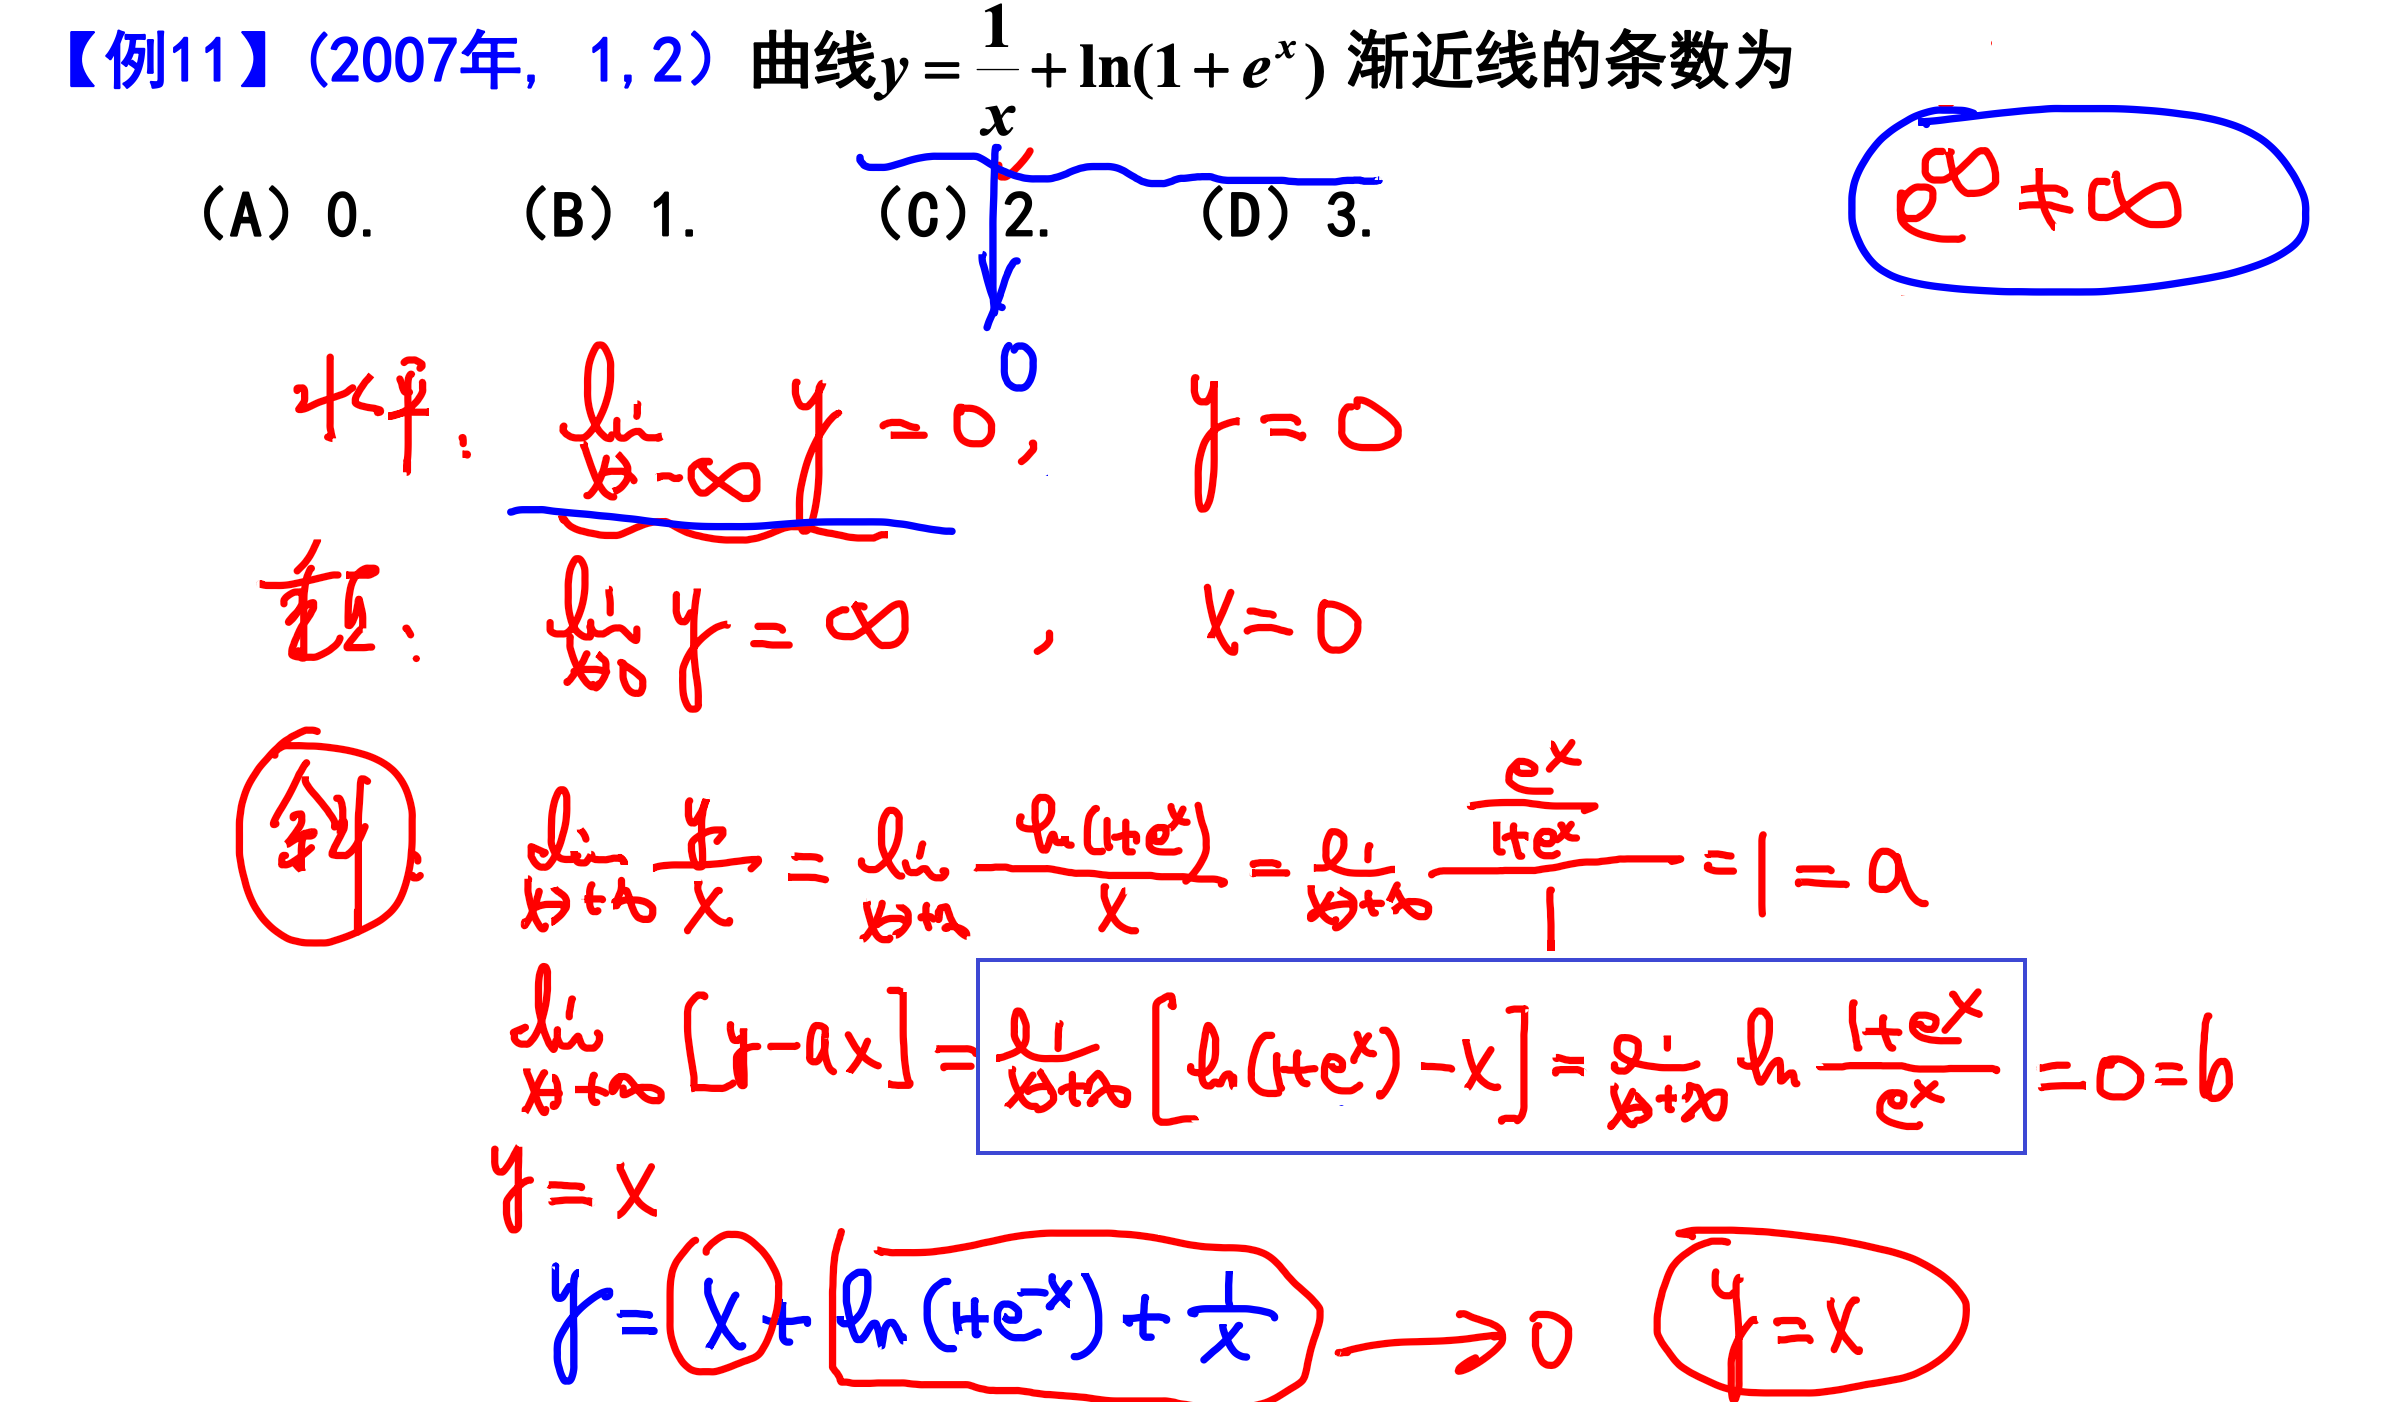 【例11】(2007年, 1,2) 曲线 y = 1/x + ln(1 + e^x) 渐近线的条数为
(A) 0. (B) 1. (C) 2. (D) 3.
e^∞ ≠ ∞
0
水平: lim x→-∞ y = 0, y = 0
垂直: lim x→0 y = ∞, x = 0
斜: lim x→+∞ y/x = lim x→+∞ ln(1+e^x)/x = lim x→+∞ (e^x/(1+e^x))/1 = 1 = a
lim x→+∞ [y-ax] = lim x→+∞ [ln(1+e^x) - x] = lim x→+∞ ln (1+e^x)/e^x = 0 = b
y = x
y = x + ln(1+e^-x) + 1/x → 0 y = x